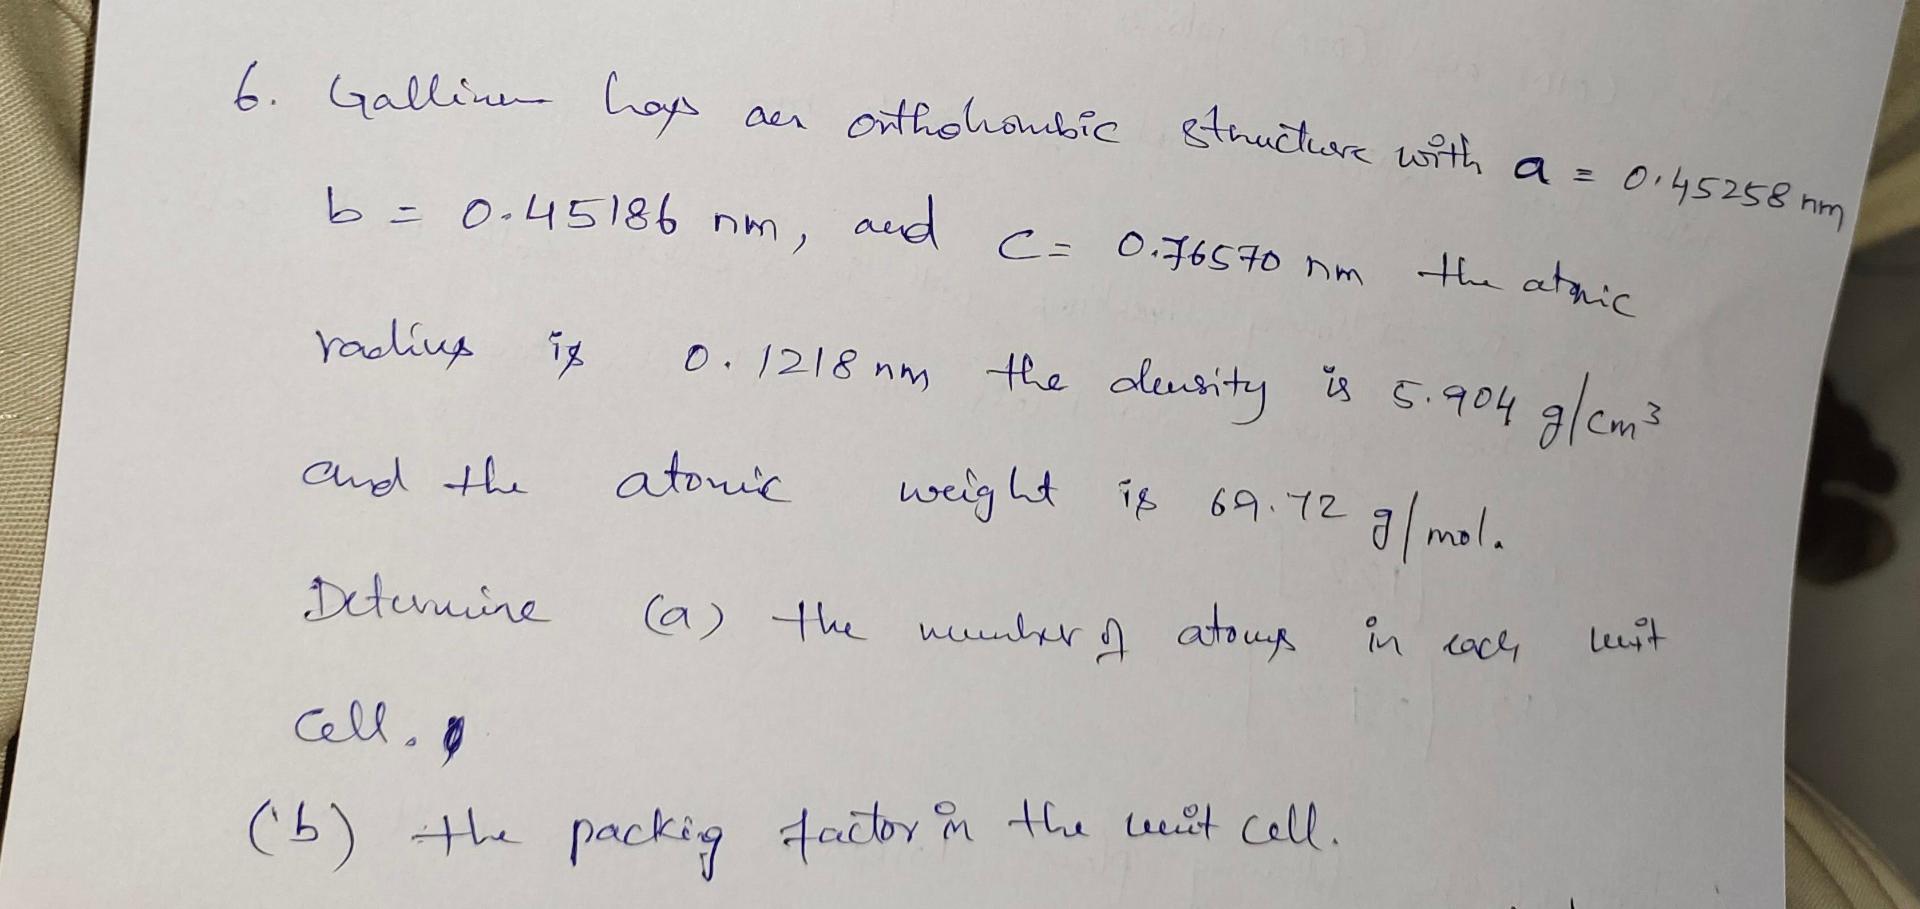 6. Gallium has an orthohombic structure with a = 0.45258 nm
b = 0.45186 nm, and c = 0.76570 nm the atomic
radius is 0.1218 nm the density is 5.904 g/cm³
and the atomic weight is 69.72 g/mol.
Determine (a) the number of atoms in each unit
cell.
(b) the packing factor in the unit cell.